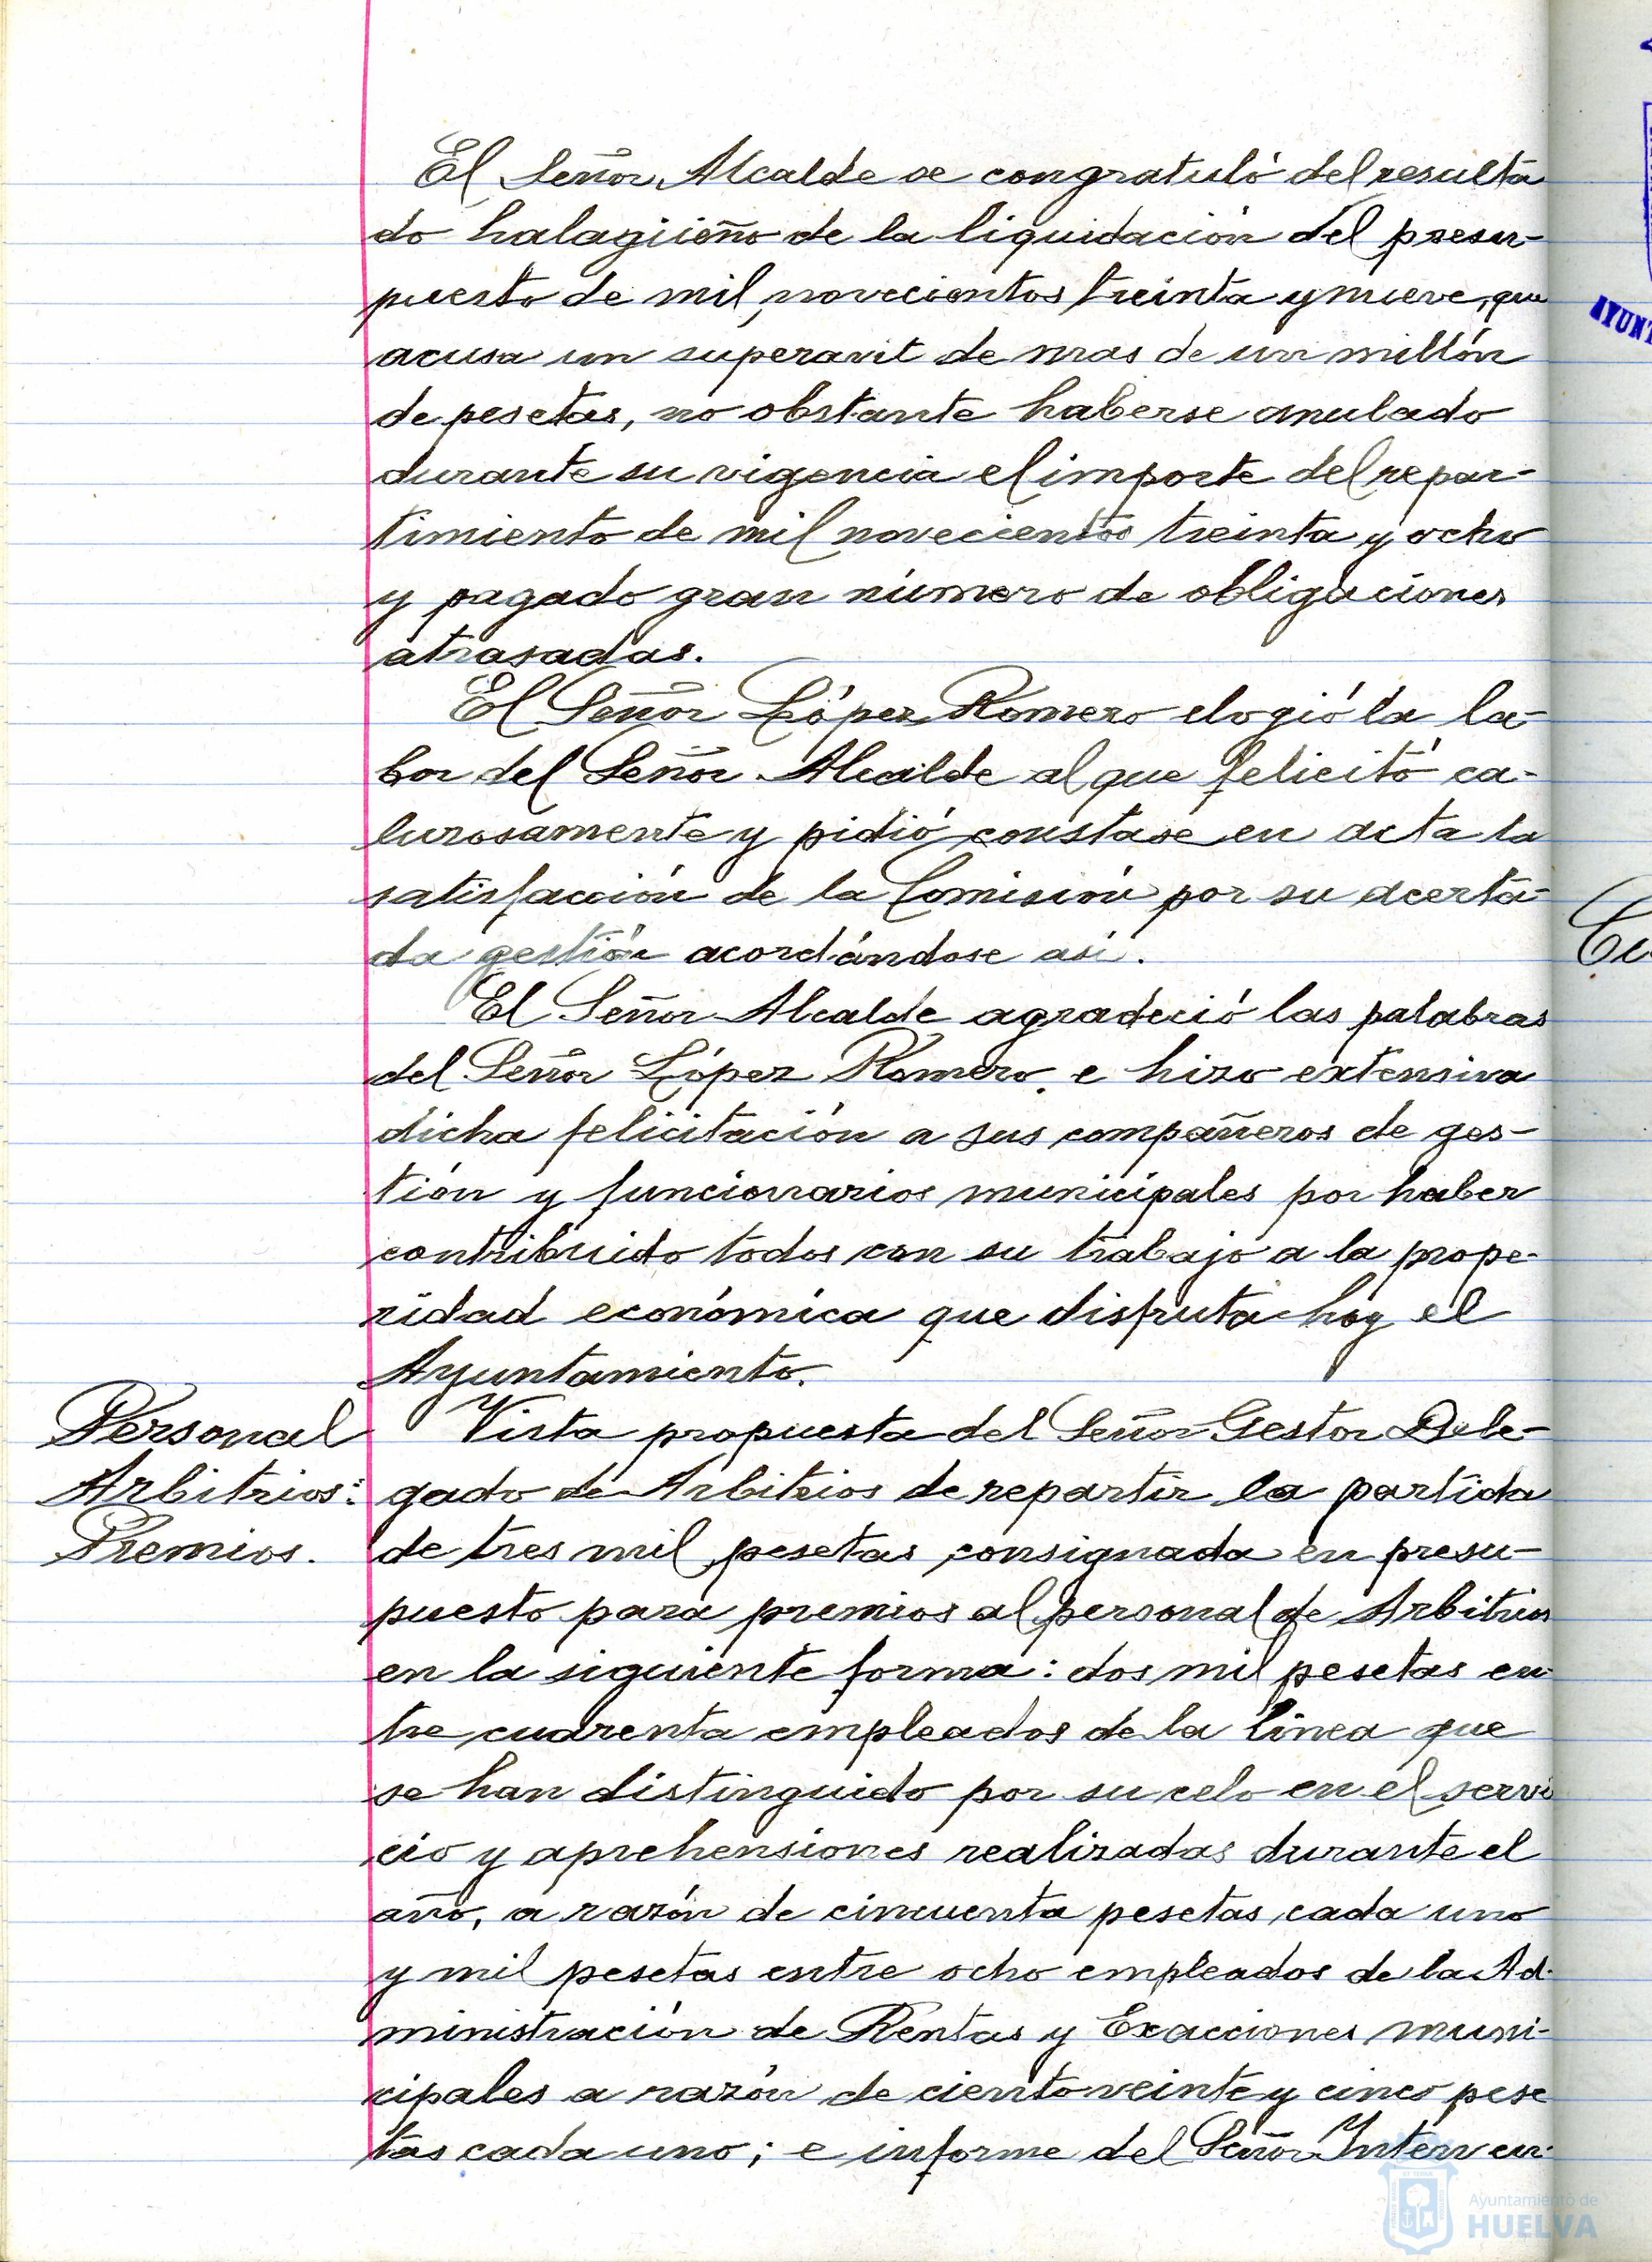 El Señor Alcalde se congratuló del resulta
do halagüeño de la liquidación del presu-
puesto de mil novecientos treinta y nueve, que
acusa un superavit de mas de un millón
de pesetas, no obstante haberse anulado
durante su vigencia el importe del repar-
timiento de mil novecientos treinta y ocho
y pagado gran número de obligaciones
atrasadas.
El Señor López Romero elogió la la-
bor del Señor Alcalde al que felicitó ca-
lurosamente y pidió constase en acta la
satisfacción de la Comisión por su acerta-
da gestión acordándose asi.
El Señor Alcalde agradeció las palabras
del Señor López Romero e hizo extensiva
dicha felicitación a sus compañeros de ges-
tión y funcionarios municipales por haber
contribuido todos con su trabajo a la prope-
ridad económica que disfruta hoy el
Ayuntamiento.
Personal
Arbitrios:
Premios.
Vista propuesta del Señor Gestor Dele-
gado de Arbitrios de repartir la partida
de tres mil pesetas consignada en presu-
puesto para premios al personal de Arbitrios
en la siguiente forma: dos mil pesetas en
tre cuarenta empleados de la linea que
se han distinguido por su celo en el servi
cio y aprehensiones realizadas durante el
año, a razón de cincuenta pesetas cada uno
y mil pesetas entre ocho empleados de la Ad-
ministración de Rentas y Exacciones muni-
cipales a razón de ciento veinte y cinco pese
tas cada uno; e informe del Señor Interven-
AYUNT
Ayuntamiento de
HUELVA